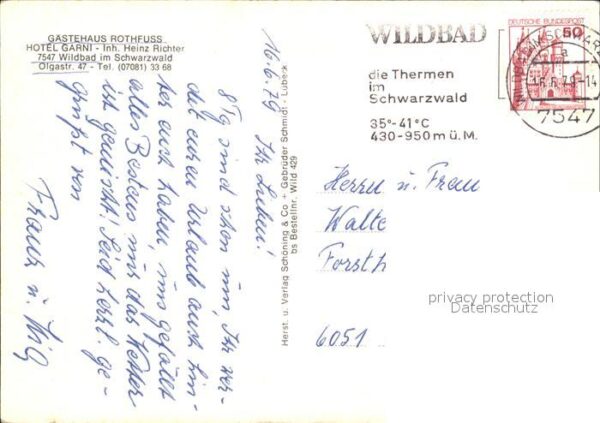 GÄSTEHAUS ROTHFUSS
HOTEL GARNI - Inh. Heinz Richter
7547 Wildbad im Schwarzwald
Olgastr. 47 - Tel. (07081) 33 68
16.6.79
Ihr Lieben!
8 Tg sind schon um, Ihr wer-
det euren Urlaub auch hin-
ter euch haben, uns gefällt
alles Bestens nur das Wetter
ist gemischt! Seid herzl. ge-
grüßt von
Franz u.
Herst. u. Verlag Schöning & Co + Gebrüder Schmidt - Lübeck
bs Bestellnr. Wild 429
WILDBAD
die Thermen
im
Schwarzwald
35°-41°C
430-950 m ü. M.
DEUTSCHE BUNDESPOST
50
WILDBAD IM SCHWARZW
a
16.6.79-14
7547
Herrn u. Frau
Walte
Forsth
6051
privacy protection
Datenschutz